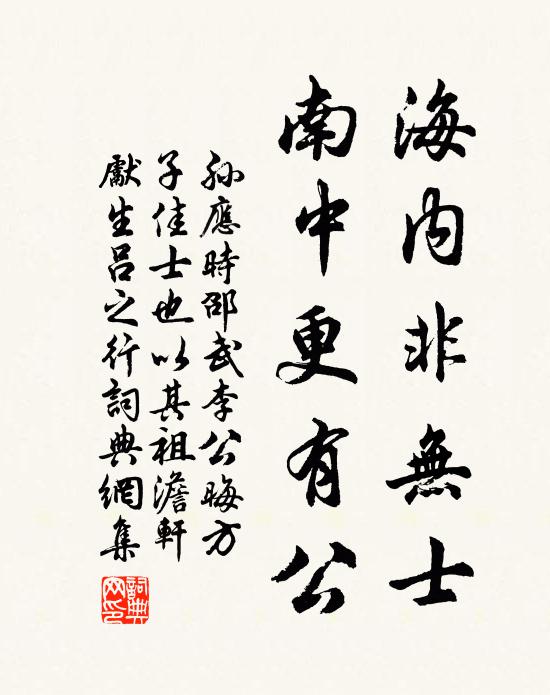 海内非無士
南中更有公
孫應時邵武李公晦方
子佳士也以其祖澹軒
獻生吕之行詞典網集
詞典網印